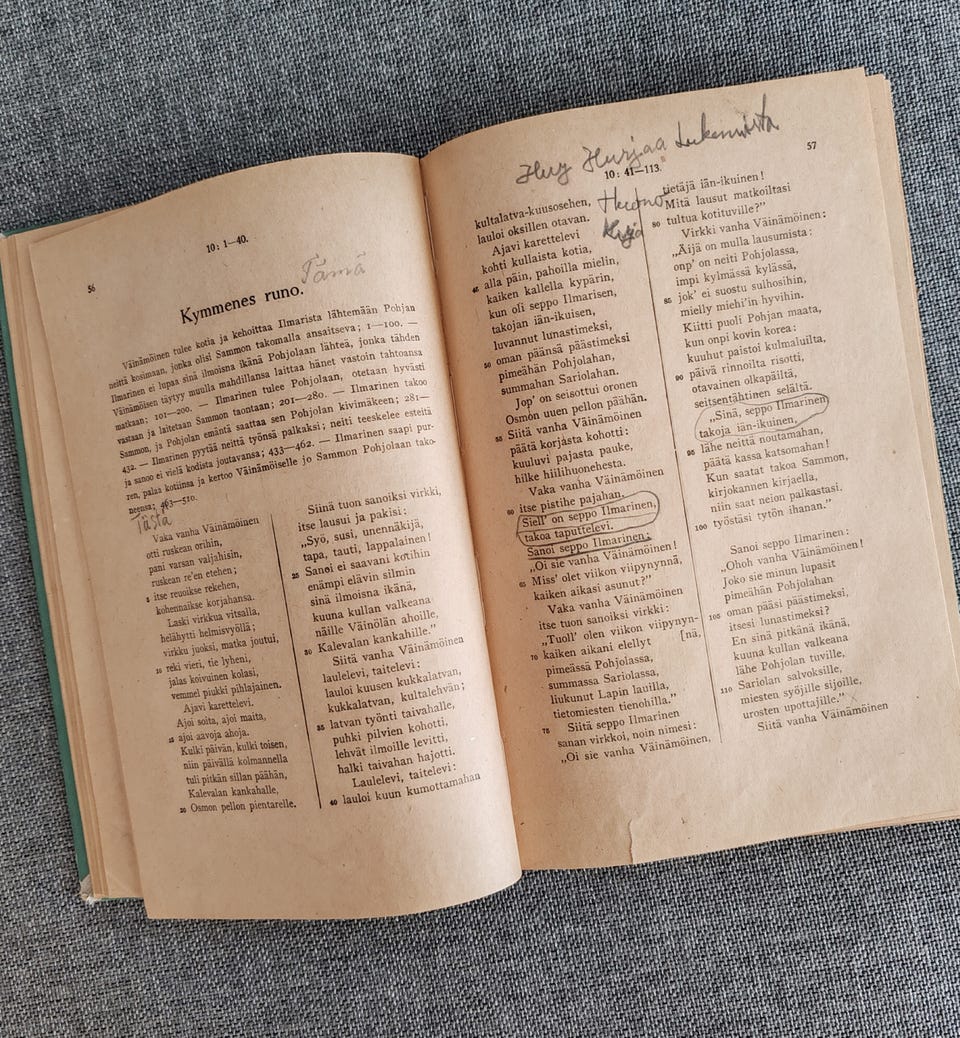 56
10: 1—40.
Tämä
Kymmenes runo.
Väinämöinen tulee kotia ja kehoittaa Ilmarista lähtemään Pohjan
neittä kosimaan, jonka olisi Sammon takomalla ansaitseva; 1—100. —
Ilmarinen ei lupaa sinä ilmoisna ikänä Pohjolaan lähteä, jonka tähden
Väinämöisen täytyy muulla mahdillansa laittaa hänet vastoin tahtoansa
matkaan; 101—200. — Ilmarinen tulee Pohjolaan, otetaan hyvästi
vastaan ja laitetaan Sammon taontaan; 201—280. — Ilmarinen takoo
Sammon, ja Pohjolan emäntä saattaa sen Pohjolan kivimäkeen; 281—
432. — Ilmarinen pyytää neittä työnsä palkaksi; neiti teeskelee esteitä
ja sanoo ei vielä kodista joutavansa; 433—462. — Ilmarinen saapi pur-
ren, palaa kotiinsa ja kertoo Väinämöiselle jo Sammon Pohjolaan tako-
neensa; 463—510.
Tästä
Vaka vanha Väinämöinen
otti ruskean orihin,
pani varsan valjahisin,
ruskean re'en etehen;
5 itse reuoikse rekehen,
kohennaikse korjahansa.
Laski virkkua vitsalla,
helähytti helmisvyöllä;
virkku juoksi, matka joutui,
10 reki vieri, tie lyheni,
jalas koivuinen kolasi,
vemmel piukki pihlajainen.
Ajavi karettelevi.
Ajoi soita, ajoi maita,
15 ajoi aavoja ahoja.
Kulki päivän, kulki toisen,
niin päivällä kolmannella
tuli pitkän sillan päähän,
Kalevalan kankahalle,
20 Osmon pellon pientarelle.
Siinä tuon sanoiksi virkki,
itse lausui ja pakisi:
„Syö, susi, unennäkijä,
tapa, tauti, lappalainen!
25 Sanoi ei saavani kotihin
enämpi elävin silmin
sinä ilmoisna ikänä,
kuuna kullan valkeana
näille Väinölän ahoille,
30 Kalevalan kankahille."
Siitä vanha Väinämöinen
laulelevi, taitelevi:
lauloi kuusen kukkalatvan,
kukkalatvan, kultalehvän;
35 latvan työnti taivahalle,
puhki pilvien kohotti,
lehvät ilmoille levitti,
halki taivahan hajotti.
Laulelevi, taitelevi:
40 lauloi kuun kumottamahan
57
Hyy Hurjaa Lukemista
10: 41—113.
Huono
Kirja
kultalatva-kuusosehen,
lauloi oksillen otavan.
Ajavi karettelevi
kohti kullaista kotia,
45 alla päin, pahoilla mielin,
kaiken kallella kypärin,
kun oli seppo Ilmarisen,
takojan iän-ikuisen,
luvannut lunastimeksi,
50 oman päänsä päästimeksi
pimeähän Pohjolahan,
summahan Sariolahan.
Jop' on seisottui oronen
Osmon uuen pellon päähän.
55 Siitä vanha Väinämöinen
päätä korjasta kohotti:
kuuluvi pajasta pauke,
hilke hiilihuonehesta.
Vaka vanha Väinämöinen
60 itse pistihe pajahan.
Siell' on seppo Ilmarinen,
takoa taputtelevi.
Sanoi seppo Ilmarinen:
„Oi sie vanha Väinämöinen!
65 Miss' olet viikon viipynynnä,
kaiken aikasi asunut?"
Vaka vanha Väinämöinen
itse tuon sanoiksi virkki:
„Tuoll' olen viikon viipynyn-
70 kaiken aikani elellyt [nä,
pimeässä Pohjolassa,
summassa Sariolassa,
liukunut Lapin lauilla,
tietomiesten tienohilla."
75 Siitä seppo Ilmarinen
sanan virkkoi, noin nimesi:
„Oi sie vanha Väinämöinen,
tietäjä iän-ikuinen!
Mitä lausut matkoiltasi
80 tultua kotituville?"
Virkki vanha Väinämöinen:
„Äijä on mulla lausumista:
onp' on neiti Pohjolassa,
impi kylmässä kylässä,
85 jok' ei suostu sulhosihin,
mielly miehi'in hyvihin.
Kiitti puoli Pohjan maata,
kun onpi kovin korea:
kuuhut paistoi kulmaluilta,
90 päivä rinnoilta risotti,
otavainen olkapäiltä,
seitsentähtinen selältä.
„Sinä, seppo Ilmarinen,
takoja iän-ikuinen,
95 lähe neittä noutamahan,
päätä kassa katsomahan!
Kun saatat takoa Sammon,
kirjokannen kirjaella,
niin saat neion palkastasi,
100 työstäsi tytön ihanan."
Sanoi seppo Ilmarinen:
„Ohoh vanha Väinämöinen!
Joko sie minun lupasit
pimeähän Pohjolahan
105 oman pääsi päästimeksi,
itsesi lunastimeksi?
En sinä pitkänä ikänä,
kuuna kullan valkeana
lähe Pohjolan tuville,
110 Sariolan salvoksille,
miesten syöjille sijoille,
urosten upottajille."
Siitä vanha Väinämöinen